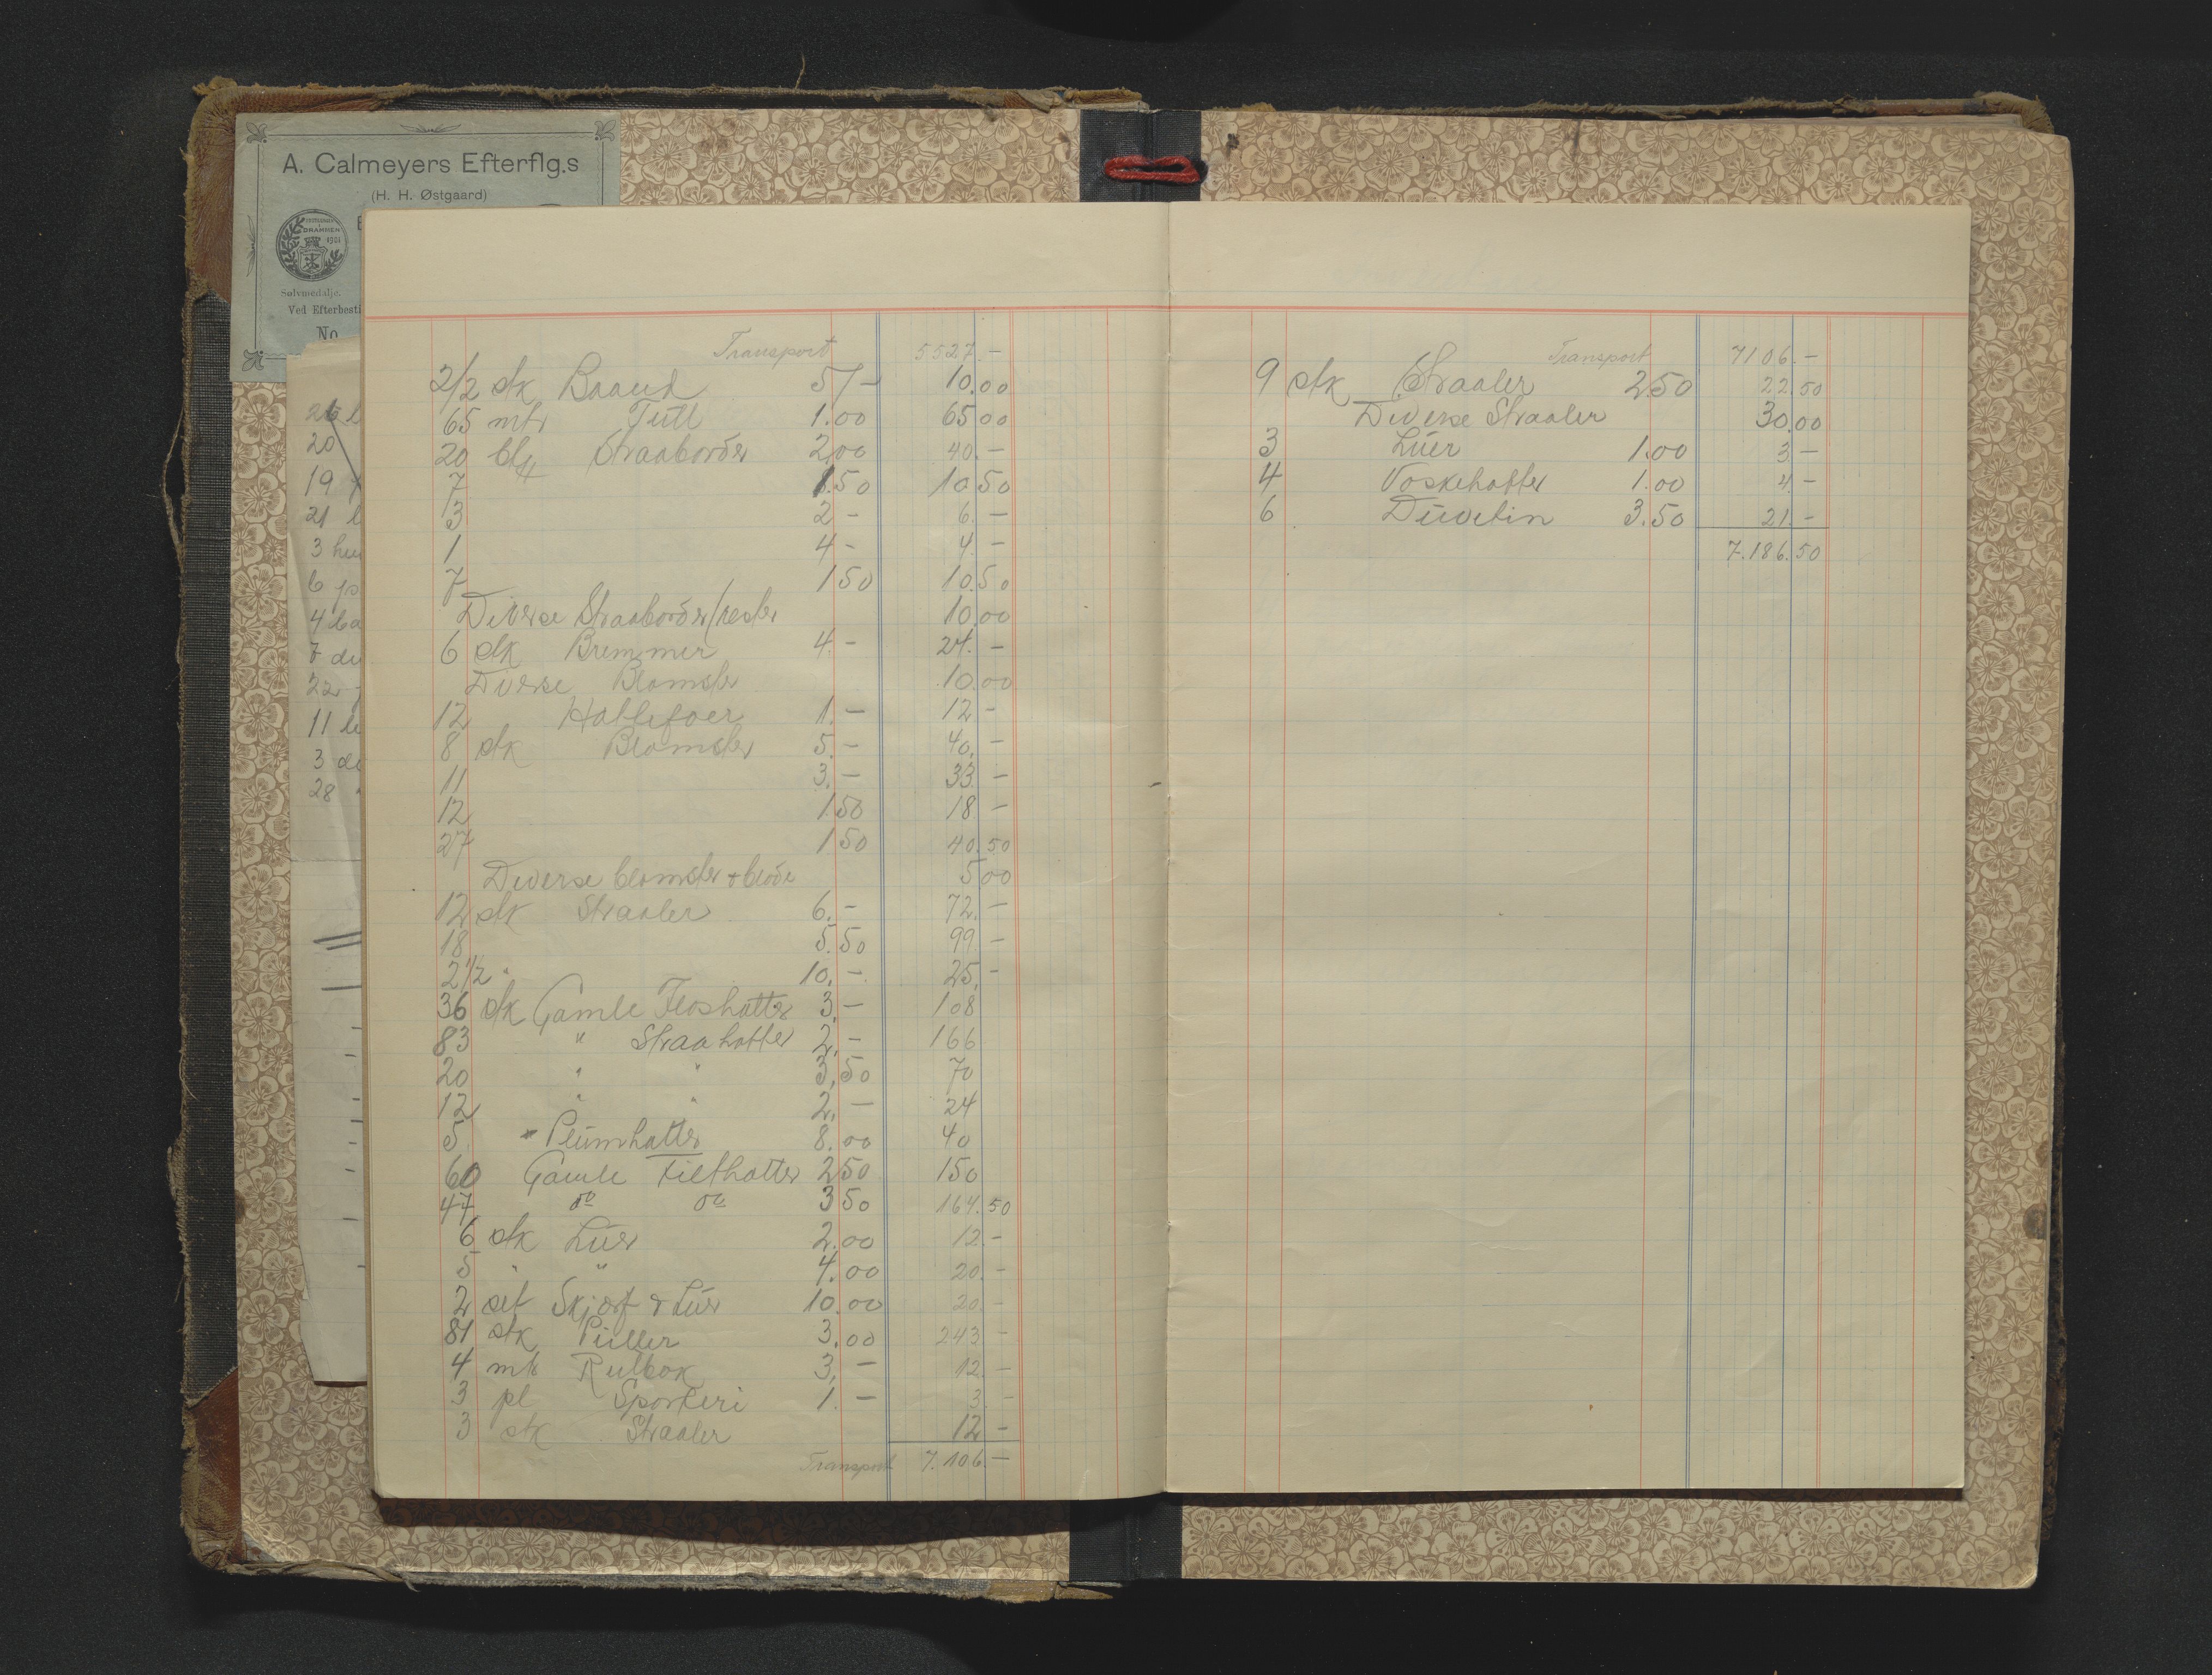 A. Calmeyers Efterflg.s
(H. H. Østgaard)
DRAMMEN
1901
Sølvmedalje.
Ved Efterbesti
No
26 l
20
19
21 l
3 hu
6 ps
4 ba
7 du
22
11 le
3 de
28
Transport 5527.-
2/2 stk Baand 5/- 10.00
65 mtr Tüll 1.00 65 00
20 blg Straaborder 2.00 40.-
7 1.50 10 50
3 2 - 6. -
1 4 - 4. -
7 1 50 10.50
Diverse Straaborder/rester 10.00
6 stk Bremmer 4.- 24. -
Diverse Blomster 10.00
12 Hattefoer 1.- 12 -
8 stk Blomster 5.- 40. -
11 3.- 33 -
12 1.50 18 -
27 1 50 40.50
Diverse blomster + blade 5 00
12 stk Straaler 6.- 72.-
18 5.50 99.-
2 1/2 " 10.- 25.-
36 stk Gamle Floshatter 3.- 108
83 " Straahatter 2.- 166
20 " " 3,50 70
12 " " 2.- 24
5 " Plümhatter 8.00 40
60 Gamle Filthatter 2 50 150
47 do do 3 50 164.50
6 stk Lüer 2.00 12.-
5 " " 4.00 20.-
2 set Skjærf & Lüer 10.00 20.-
81 stk Püller 3.00 243 -
4 mtr Rulbok 3,- 12.-
3 pl Sporteri 1.- 3.-
3 stk Straaler 12 -
Transport 7.106.-
Transport 7106.-
9 stk Straaler 2.50 22.50
Diverse Straaler 30.00
3 Lüer 1.00 3 -
4 Voskehatter 1.00 4 -
6 Düvetin 3.50 21.-
7.186.50